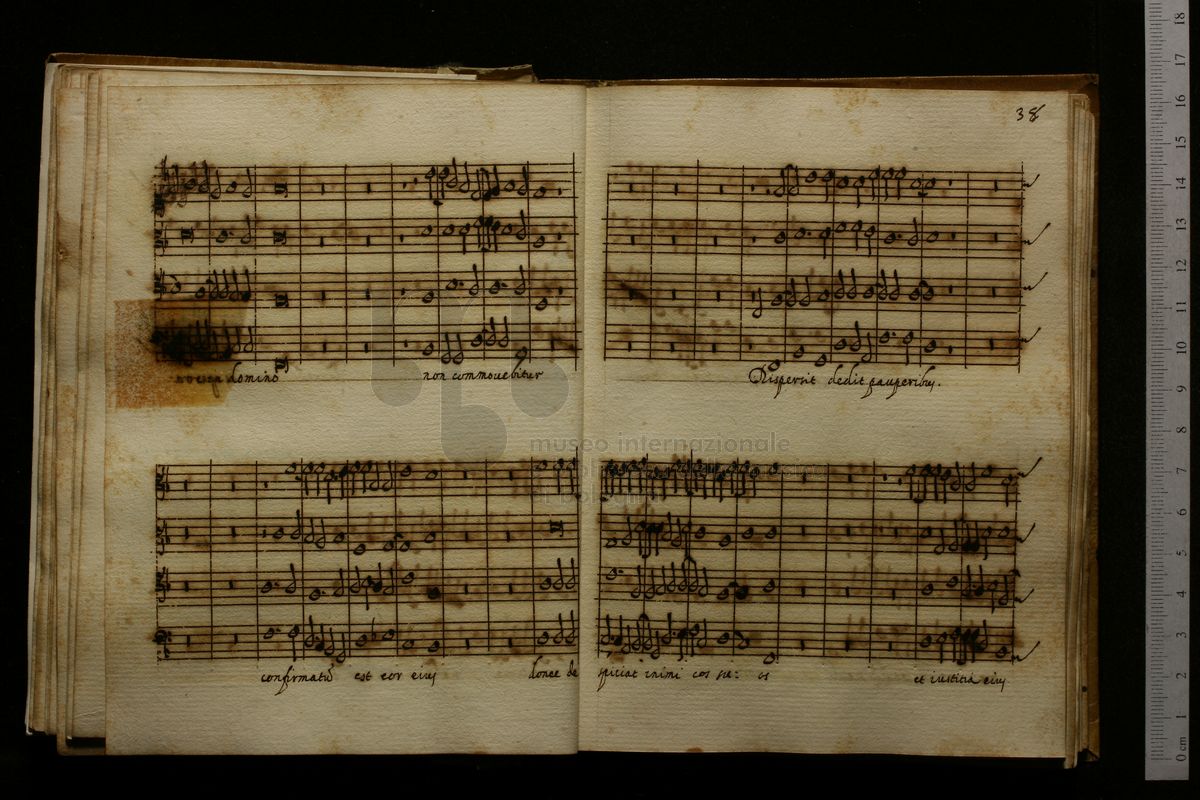 38
domino non commovebitur
Dispersit dedit pauperibus.
confirmatũ est cor eius donec de
spiciat inimi cos su: os et iustitia eius
museo internazionale
18
17
16
15
14
13
12
11
10
9
8
7
6
5
4
3
2
1
0 cm